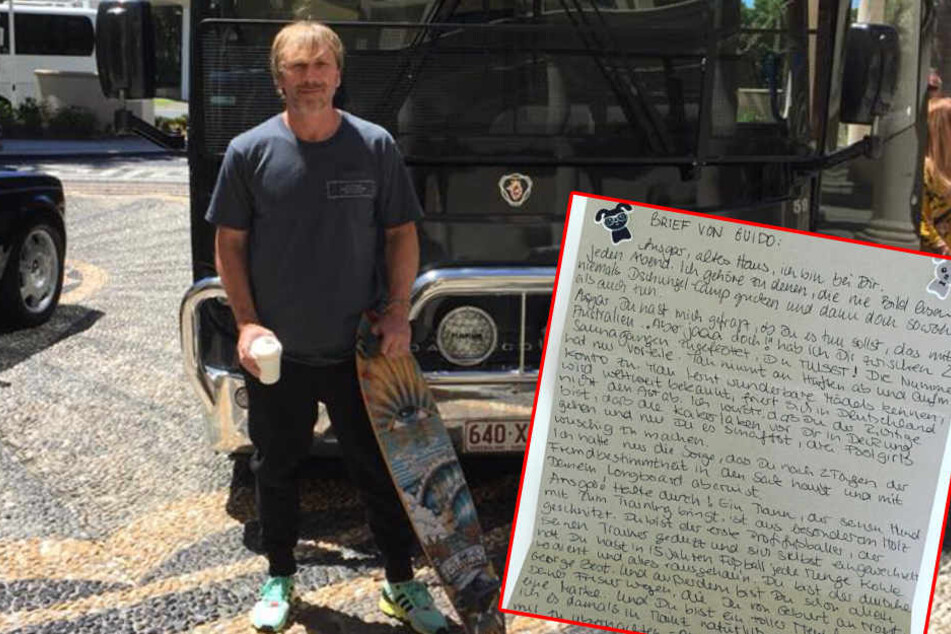 59
640·X
BRIEF VON GUIDO:
Ansgar, altes Haus, ich bin bei Dir.
Jeden Abend. Ich gehöre zu denen, die nie Bild
niemals Dschungel-Camp gucken und dann doch
als auch tun.
Ansgar Du hast mich gefragt, ob Du es tun sollst, das
Australien. Aber doch! hab ich Dir zwischen
Saunagängen zugeflötet, Du TUEST! Die Nummer
hat nur Vorteile. Man nimmt an Hüften ab und Aufm
Konto zu. Man lernt wunderbare Mädels kennen,
wird weltweit bekannt, friert sich in Deutschland
nicht den Ast ab. Ich wusste, dass Du der Richtige
bist, dass die Kakerlaken vor Dir in Deckung
gehen und nur Du es schaffst, die Poolgirls
wuschig zu machen.
Ich hatte nur die Sorge, das Du nach 2 Tagen der
Fremdbestimmtheit in den Sack haust und mit
Deinem Longboard abreist.
Ansgar! Halte durch! Ein Mann, der seinen Hund
mit zum Training bringt, ist aus besonderem Holz
geschnitzt. Du bist der erste Profifußballer, der
seinen Trainer geduzt und sich selbst eingewechselt
hat. Du hast in 15 Jahren Fußball jede Menge Kohle
verdient und alles ausgegeben. Du bist der deutsche
George Best. Und außerdem bist Du schon allein
Deiner Frisur wegen, die Du von Geburt an trägst
eine Marke. Und Du bist ein tolles
ich es damals in natürlich
mit zu übernachten